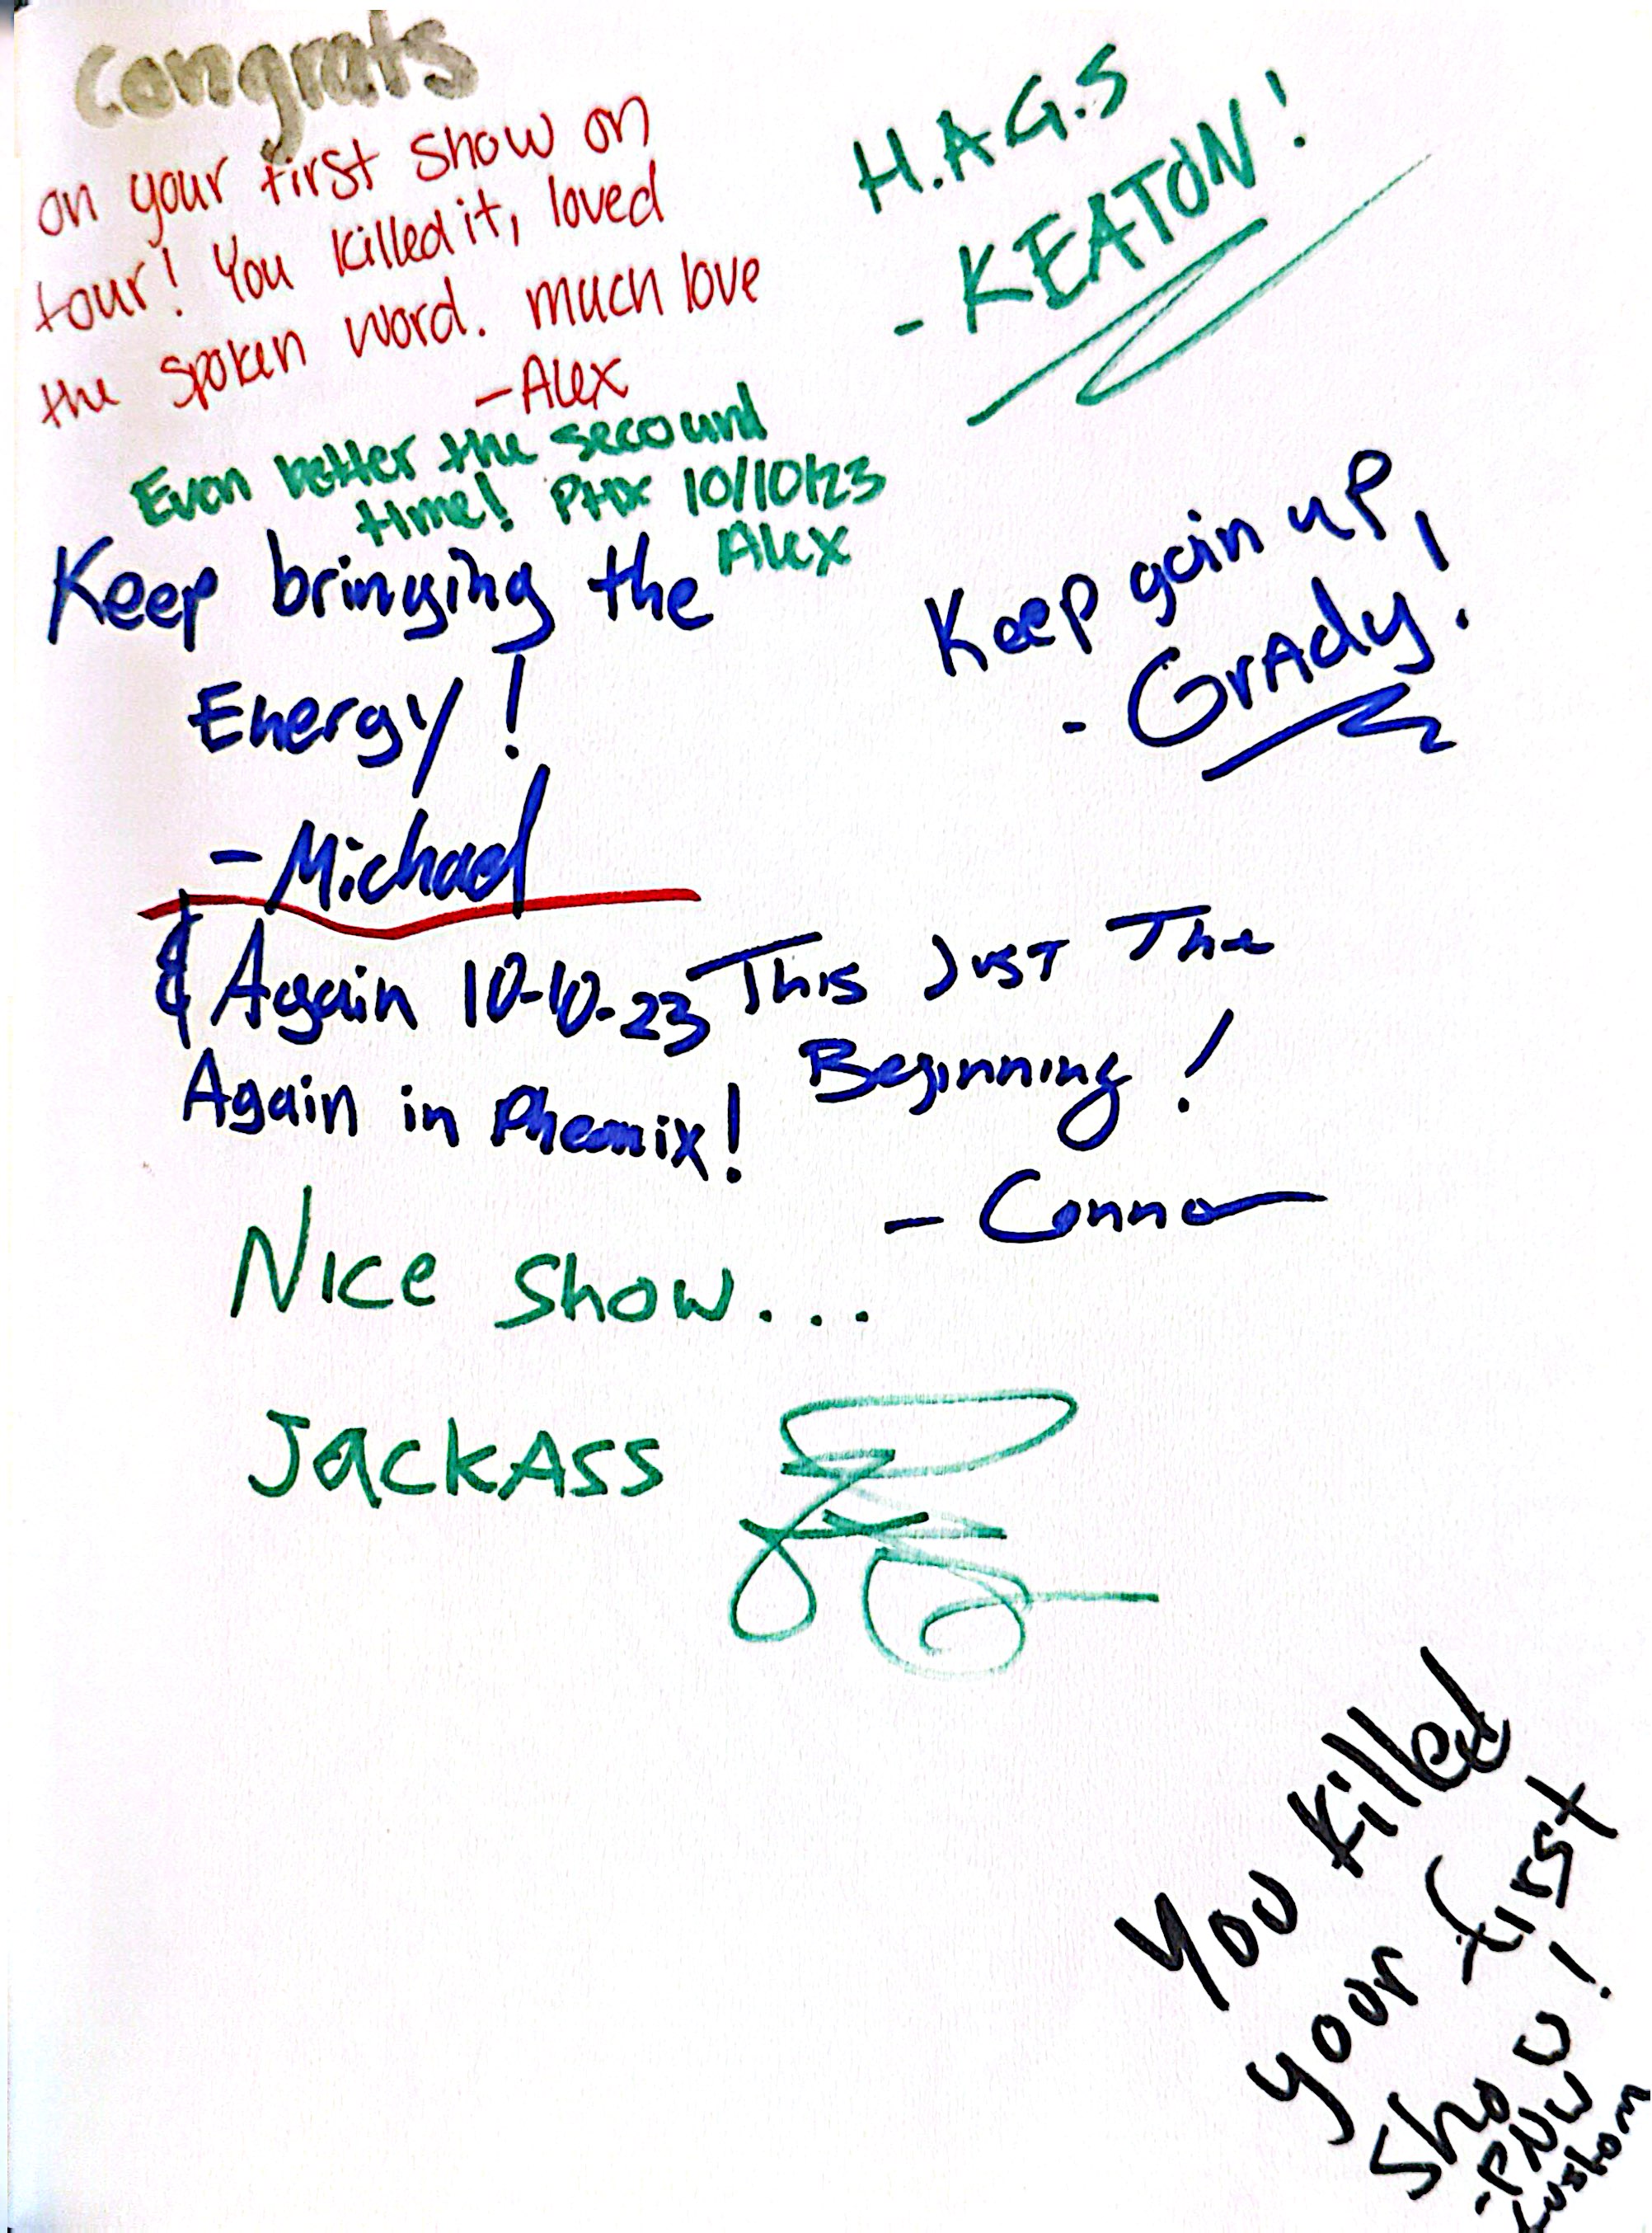 Congrats
on your first show on
tour! You killed it, loved
the spoken word. much love
-Alex
Even better the secound
time! PHX 10/10/23
Alex
H.A.G.S
- KEATON!
Keep goin up,
- GrAdy!
Keep bringing the
Energy!
- Michael
& Again 10-10-23
Again in Pheonix!
This Just The
Beginning!
- Connor
Nice show...
JackAss
You killed
your first
show!
-PNW
Custom